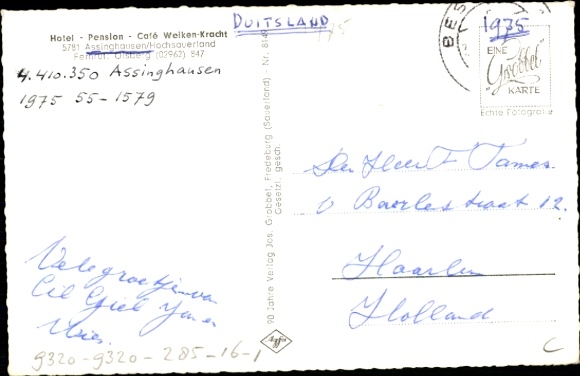 Hotel - Pension - Café Welken-Kracht
5781 Assinghausen/Hochsauerland
Fernruf: Olsberg (02962) 847
4.410.350 Assinghausen
1975 55-1579
DUITSLAND
1975
BES
EINE
Grobbel
KARTE
Echte Fotografie
90 Jahre Verlag Jos. Grobbel, Fredeburg (Sauerland) · Nr.
Gesetzl. gesch.
Agfa
Den Heer F Tames.
Haarlem
Holland
Vele groetjes van
Cil Giel
9320-9320-285-16-1
C